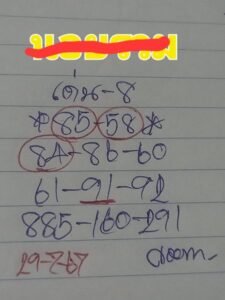 เด่น-8
*85-58*
84-86-60
61-91-92
885-160-291
29-7-67